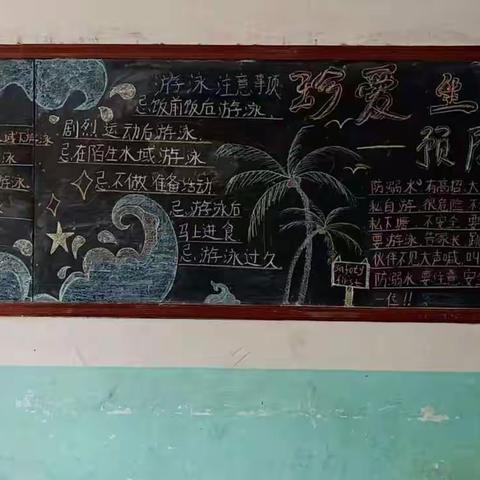 游泳注意事项
忌饭前饭后游泳
剧烈运动后游泳
忌在陌生水域游泳
忌不做准备活动
忌游泳后
马上进食
忌游泳过久
珍爱
预防
safety
first
防溺水 有高招 大
私自游 很危险 不
私下塘 不安全 要
要游泳
伙伴不见大声喊
防溺水 要注意 安